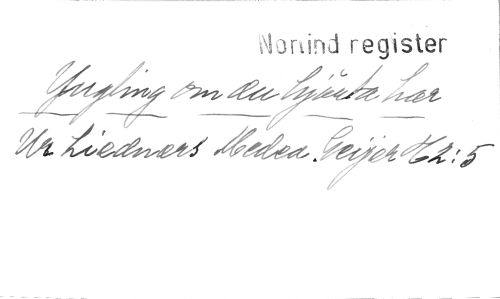 Norlind register
Yngling om du hjärta har
Ur Lidners Medea. Geijer H2:5